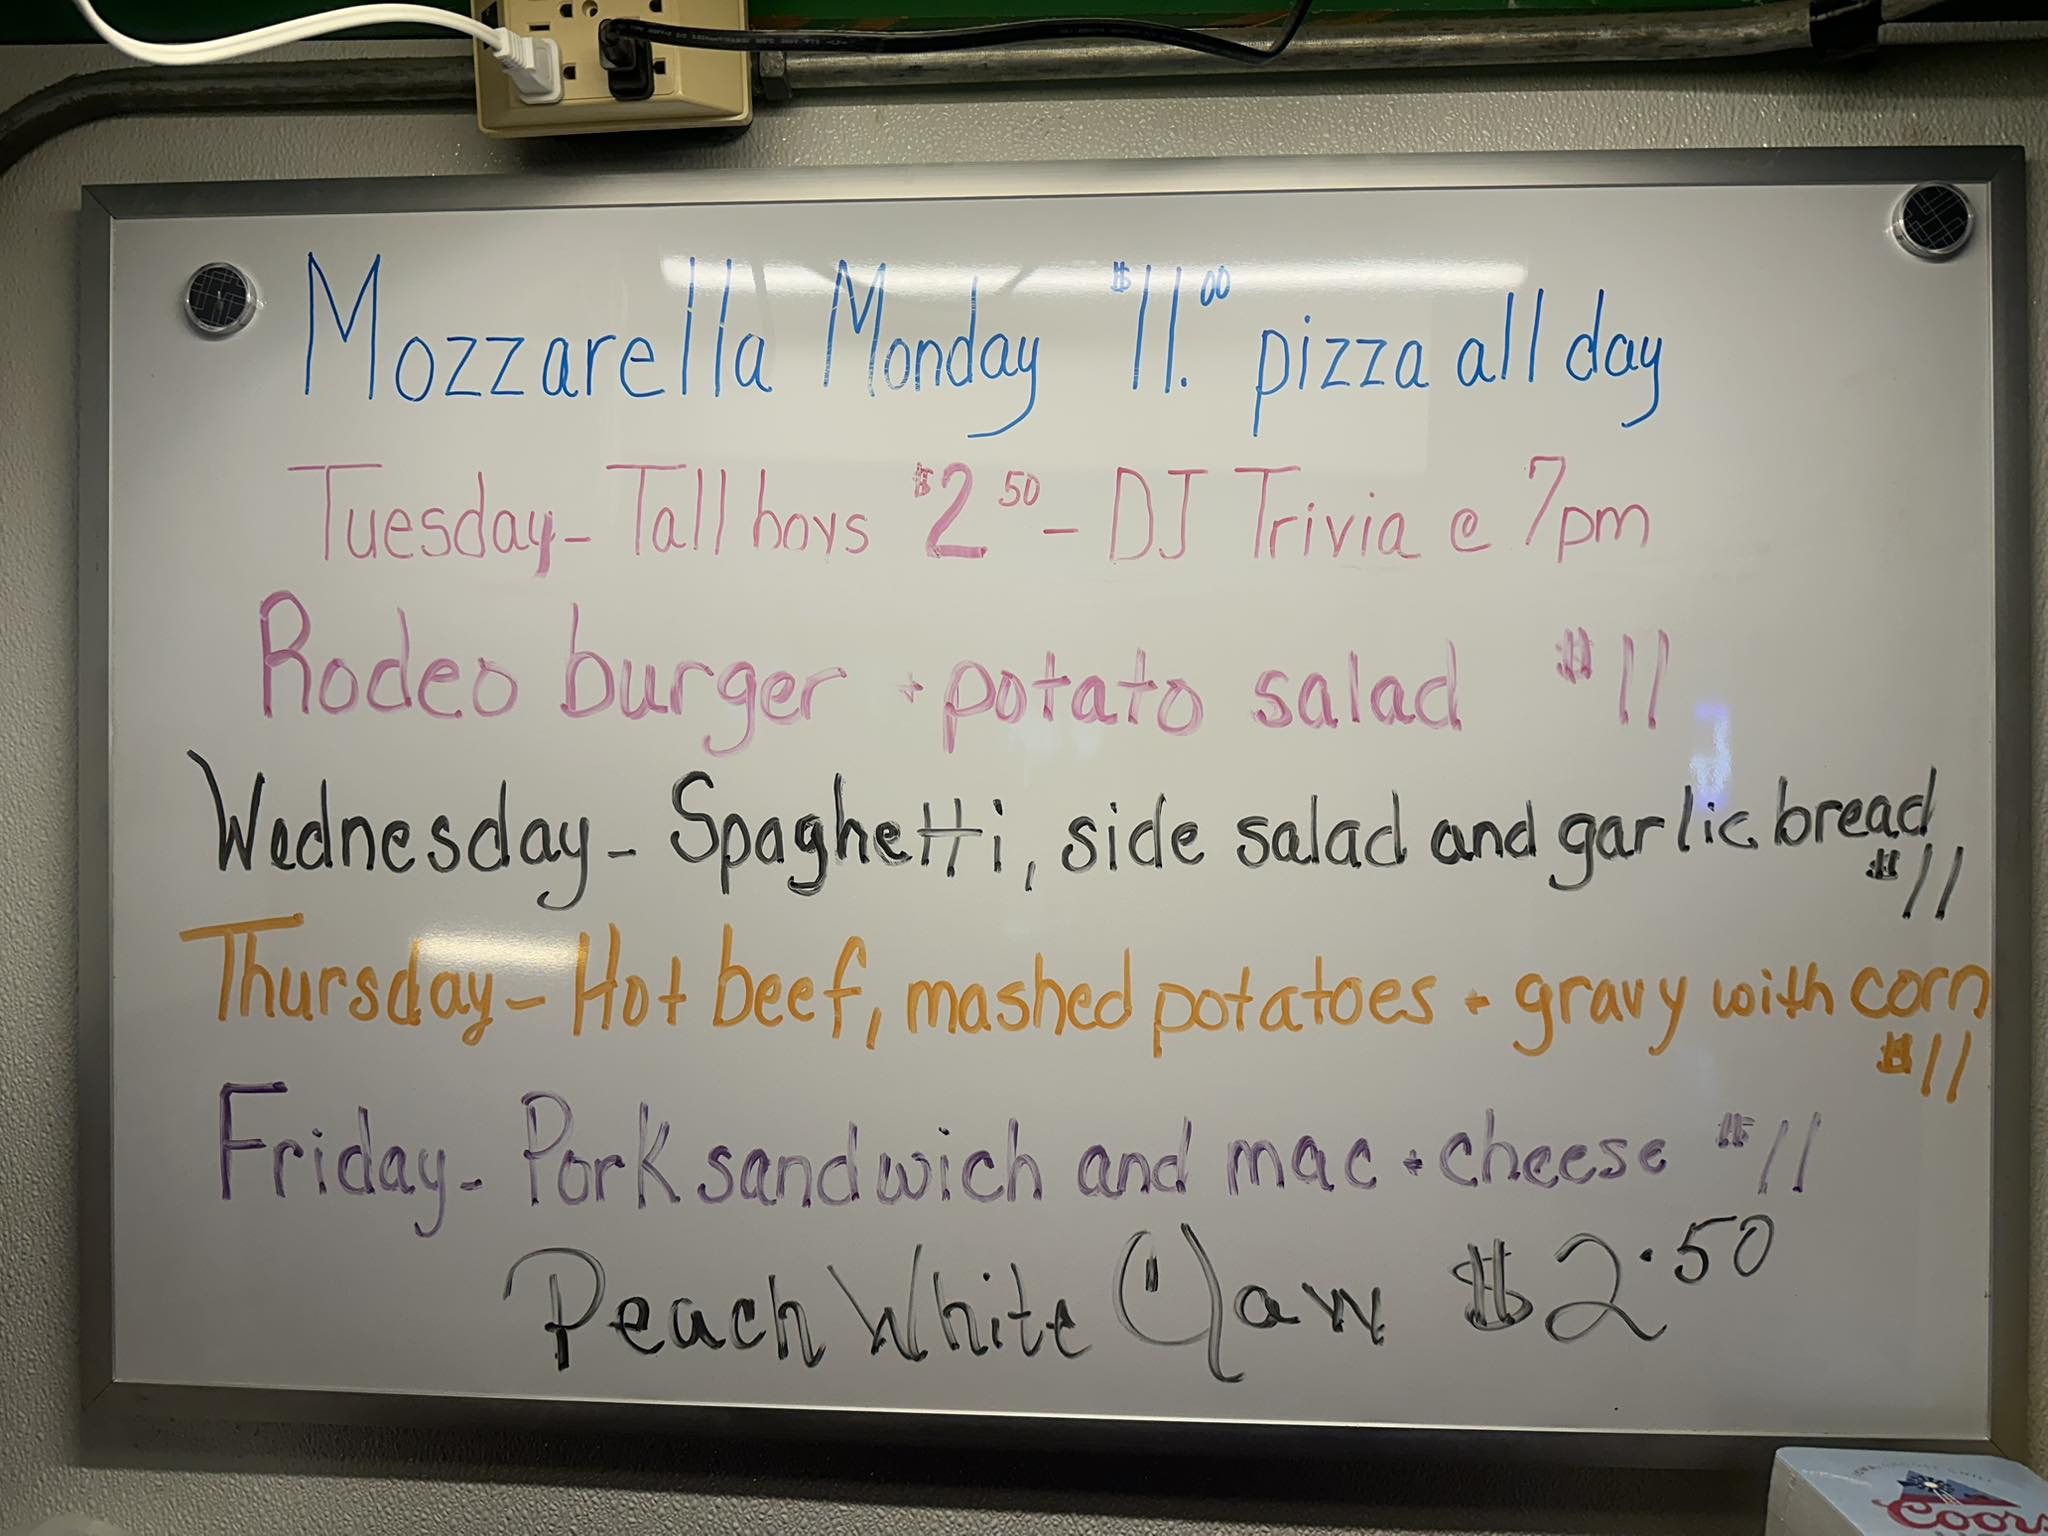 Mozzarella Monday $11.00 pizza all day
Tuesday- Tall boys $2 50 - DJ Trivia @ 7pm
Rodeo burger + potato salad $11
Wednesday- Spaghetti, side salad and garlic bread
$11
Thursday- Hot beef, mashed potatoes + gravy with corn
$11
Friday- Pork sandwich and mac + cheese $11
Peach White Claw $2.50
Coors